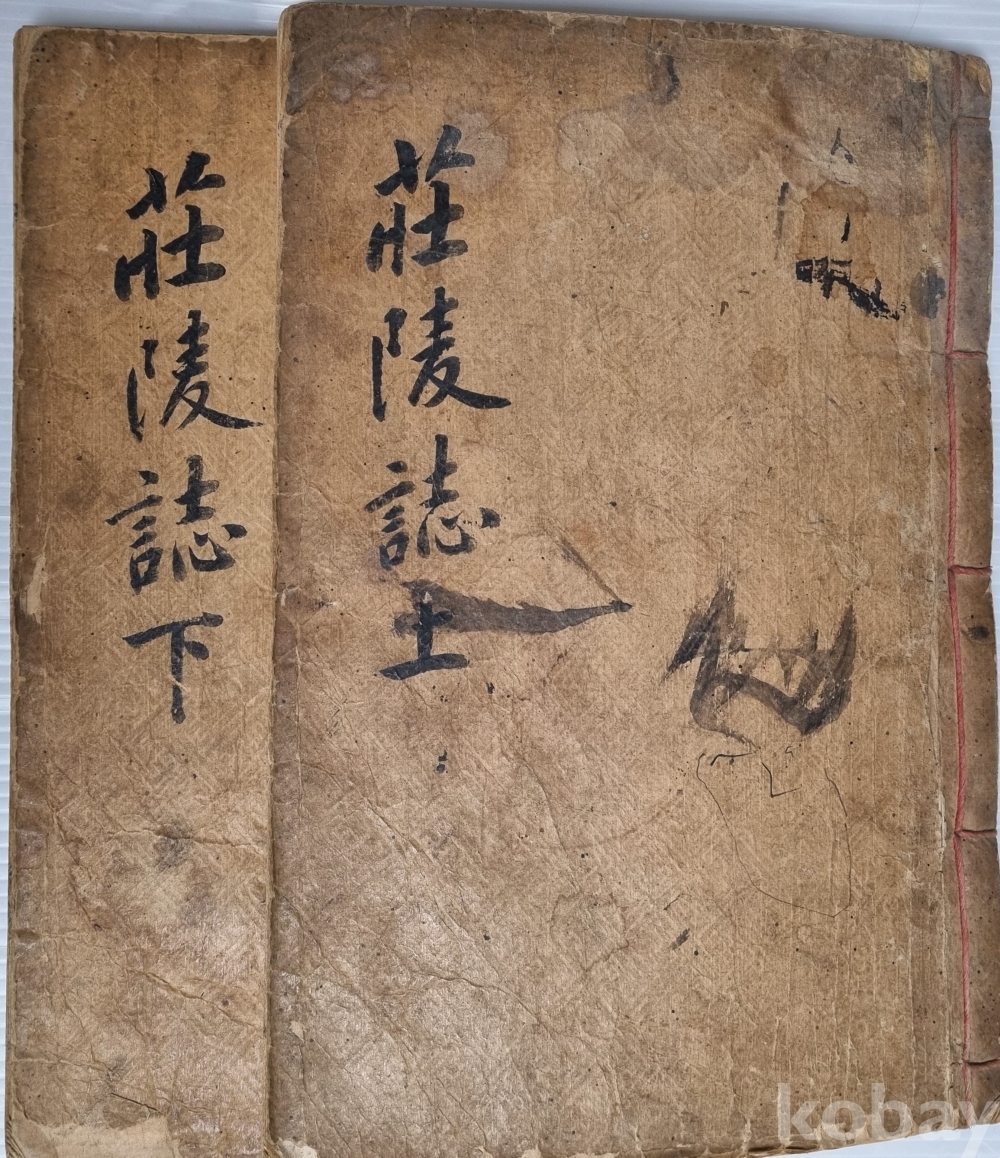 莊陵誌上
莊陵誌下
kobay